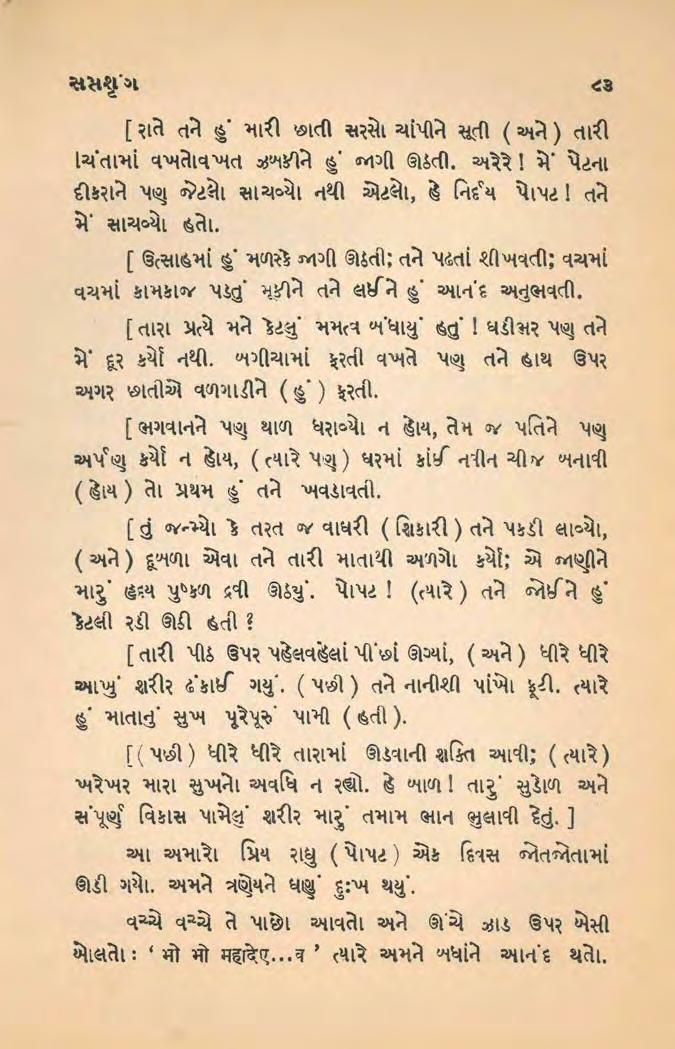 સપ્તશૃંગ ૮૩
[ રાતે તને હું મારી છાતી સરસો ચાંપીને સૂતી ( અને ) તારી
ચિંતામાં વખતોવખત ઝબકીને હું જાગી ઊઠતી. અરેરે ! મેં પેટના
દીકરાને પણ જેટલો સાચવ્યો નથી એટલો, હે નિર્દય પોપટ ! તને
મેં સાચવ્યો હતો.
[ ઉત્સાહમાં હું મળસ્કે જાગી ઊઠતી; તને પઢતાં શીખવતી; વચમાં
વચમાં કામકાજ પડતું મૂકીને તને લઈને હું આનંદ અનુભવતી.
[ તારા પ્રત્યે મને કેટલું મમત્વ બંધાયું હતું ! ઘડીભર પણ તને
મેં દૂર કર્યો નથી. બગીચામાં ફરતી વખતે પણ તને હાથ ઉપર
અગર છાતીએ વળગાડીને ( હું ) ફરતી.
[ ભગવાનને પણ થાળ ધરાવ્યો ન હોય, તેમ જ પતિને પણ
અર્પણ કર્યો ન હોય, ( ત્યારે પણ ) ઘરમાં કાંઈ નવીન ચીજ બનાવી
( હોય ) તો પ્રથમ હું તને ખવડાવતી.
[ તું જન્મ્યો કે તરત જ વાઘરી ( શિકારી ) તને પકડી લાવ્યો,
( અને ) દૂબળા એવા તને તારી માતાથી અળગો કર્યો; એ જાણીને
મારું હૃદય પુષ્કળ દ્રવી ઊઠ્યું. પોપટ ! (ત્યારે ) તને જોઈને હું
કેટલી રડી ઊઠી હતી ?
[ તારી પીઠ ઉપર પહેલવહેલાં પીંછાં ઊગ્યાં, ( અને ) ધીરે ધીરે
આખું શરીર ઢંકાઈ ગયું. ( પછી ) તને નાનીશી પાંખો ફૂટી. ત્યારે
હું માતાનું સુખ પૂરેપૂરું પામી ( હતી ).
[( પછી ) ધીરે ધીરે તારામાં ઊડવાની શક્તિ આવી; ( ત્યારે )
ખરેખર મારા સુખનો અવધિ ન રહ્યો. હે બાળ ! તારું સુડોળ અને
સંપૂર્ણ વિકાસ પામેલું શરીર મારું તમામ ભાન ભુલાવી દેતું. ]
આ અમારો પ્રિય રાઘુ ( પોપટ ) એક દિવસ જોતજોતામાં
ઊડી ગયો. અમને ત્રણેયને ઘણું દુઃખ થયું.
વચ્ચે વચ્ચે તે પાછો આવતો અને ઊંચે ઝાડ ઉપર બેસી
બોલતો : ‘ भो भो महादेए...व ’ ત્યારે અમને બધાંને આનંદ થતો.